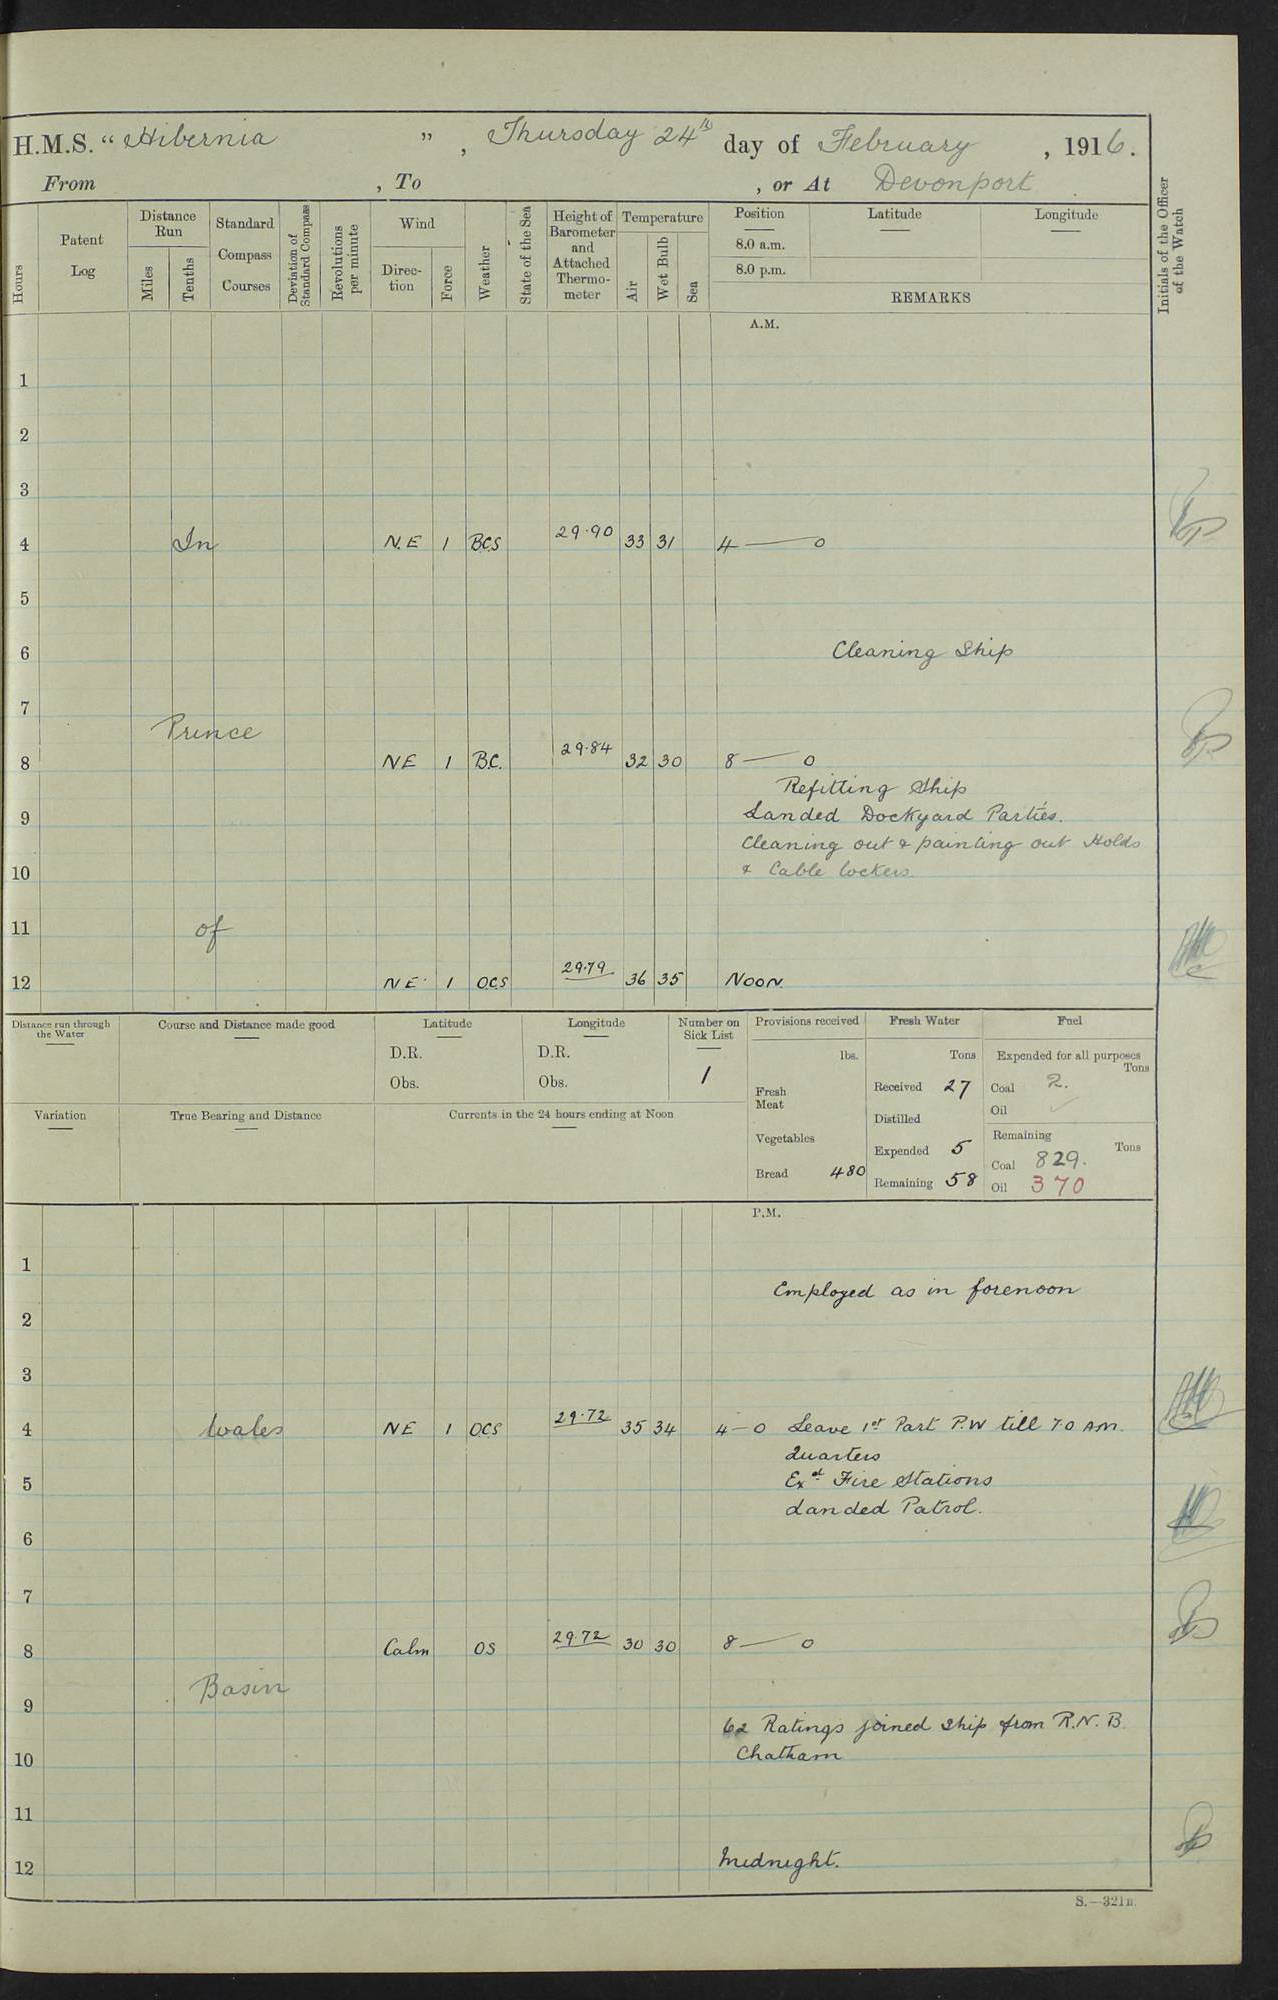 H.M.S. “Hibernia”, Thursday 24th day of February, 1916.
From , To , or At Devonport
Hours
Patent Log
Distance Run
Miles
Tenths
Standard Compass Courses
Deviation of Standard Compass
Revolutions per minute
Wind
Direc-tion
Force
Weather
State of the Sea
Height of Barometer and Attached Thermo-meter
Temperature
Air
Wet Bulb
Sea
Position
8.0 a.m.
8.0 p.m.
Latitude
Longitude
REMARKS
Initials of the Officer of the Watch
A.M.
1
2
3
4 In N.E 1 BCS 29.90 33 31 4 — 0
5
6 Cleaning Ship
7
Prince
8 NE 1 B.C. 29.84 32 30 8 — 0
Refitting Ship
9 Landed Dockyard Parties.
Cleaning out & painting out Holds
10 & Cable lockers.
11 of
12 NE 1 OCS 29.79 36 35 Noon.
Distance run through the Water
Course and Distance made good
Latitude
D.R.
Obs.
Longitude
D.R.
Obs.
Number on Sick List
1
Provisions received
lbs.
Fresh Meat
Vegetables
Bread 480
Fresh Water
Tons
Received 27
Distilled
Expended 5
Remaining 58
Fuel
Expended for all purposes
Tons
Coal 2.
Oil ✓
Remaining
Tons
Coal 829.
Oil 370
Variation
True Bearing and Distance
Currents in the 24 hours ending at Noon
P.M.
1
Employed as in forenoon
2
3
4 Wales NE 1 OCS 29.72 35 34 4 — 0 Leave 1st Part P.W till 7.0 AM.
Quarters
5 Exd Fire Stations
Landed Patrol.
6
7
8 Calm OS 29.72 30 30 8 — 0
Basin
9
62 Ratings joined Ship from R.N.B.
10 Chatham
11
12 Midnight.
S.—321B.